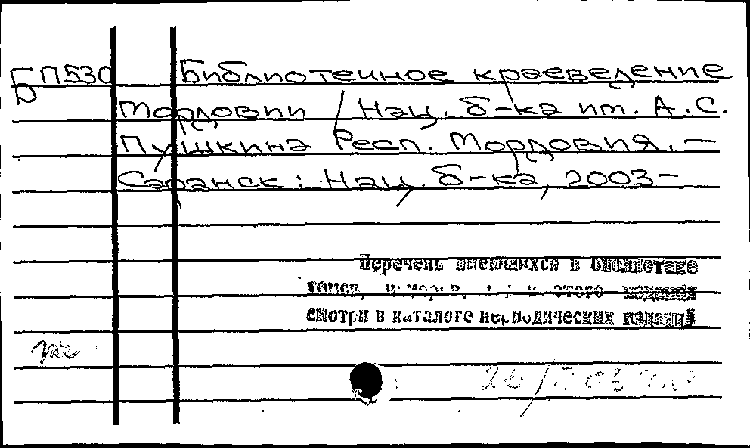 Б П530 Библиотечное краеведение
Мордовии / Нац. б-ка им. А.С.
Пушкина Респ. Мордовия. –
Саранск: Нац. б-ка, 2003-
Перечень имеющихся в библиотеке
томов, этого издания
смотри в каталоге периодических изданий